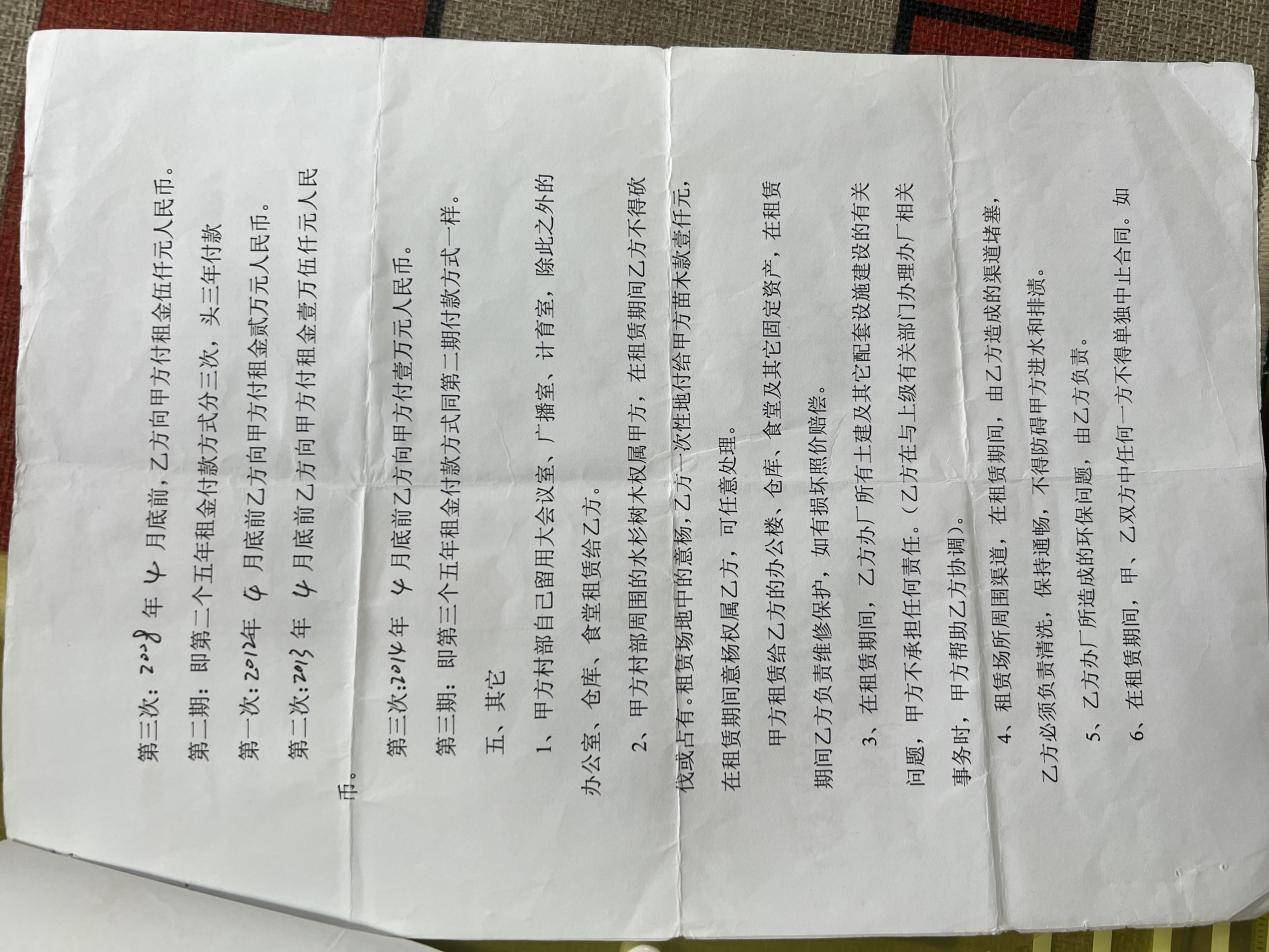 第三次：2008 年 4 月底前，乙方向甲方付租金伍仟元人民币。
第二期：即第二个五年租金付款方式分三次，头三年付款
第一次：2012年 4 月底前乙方向甲方付租金贰万元人民币。
第二次：2013 年 4 月底前乙方向甲方付租金壹万伍仟元人民
币。
第三次：2014 年 4 月底前乙方向甲方付壹万元人民币。
第三期：即第三个五年租金付款方式同第二期付款方式一样。
五、其它
1、甲方村部自己留用大会议室、广播室、计育室，除此之外的
办公室、仓库、食堂租赁给乙方。
2、甲方村部周围的水杉树木权属甲方，在租赁期间乙方不得砍
伐或占有。租赁场地中的意杨，乙方一次性地付给甲方苗木款壹仟元，
在租赁期间意杨权属乙方，可任意处理。
甲方租赁给乙方的办公楼、仓库、食堂及其它固定资产，在租赁
期间乙方负责维修保护，如有损坏照价赔偿。
3、在租赁期间，乙方办厂所有土建及其它配套设施建设的有关
问题，甲方不承担任何责任。（乙方在与上级有关部门办理办厂相关
事务时，甲方帮助乙方协调）。
4、租赁场所周围渠道，在租赁期间，由乙方造成的渠道堵塞，
乙方必须负责清洗，保持通畅，不得防碍甲方进水和排渍。
5、乙方办厂所造成的环保问题，由乙方负责。
6、在租赁期间，甲、乙双方中任何一方不得单独中止合同。如